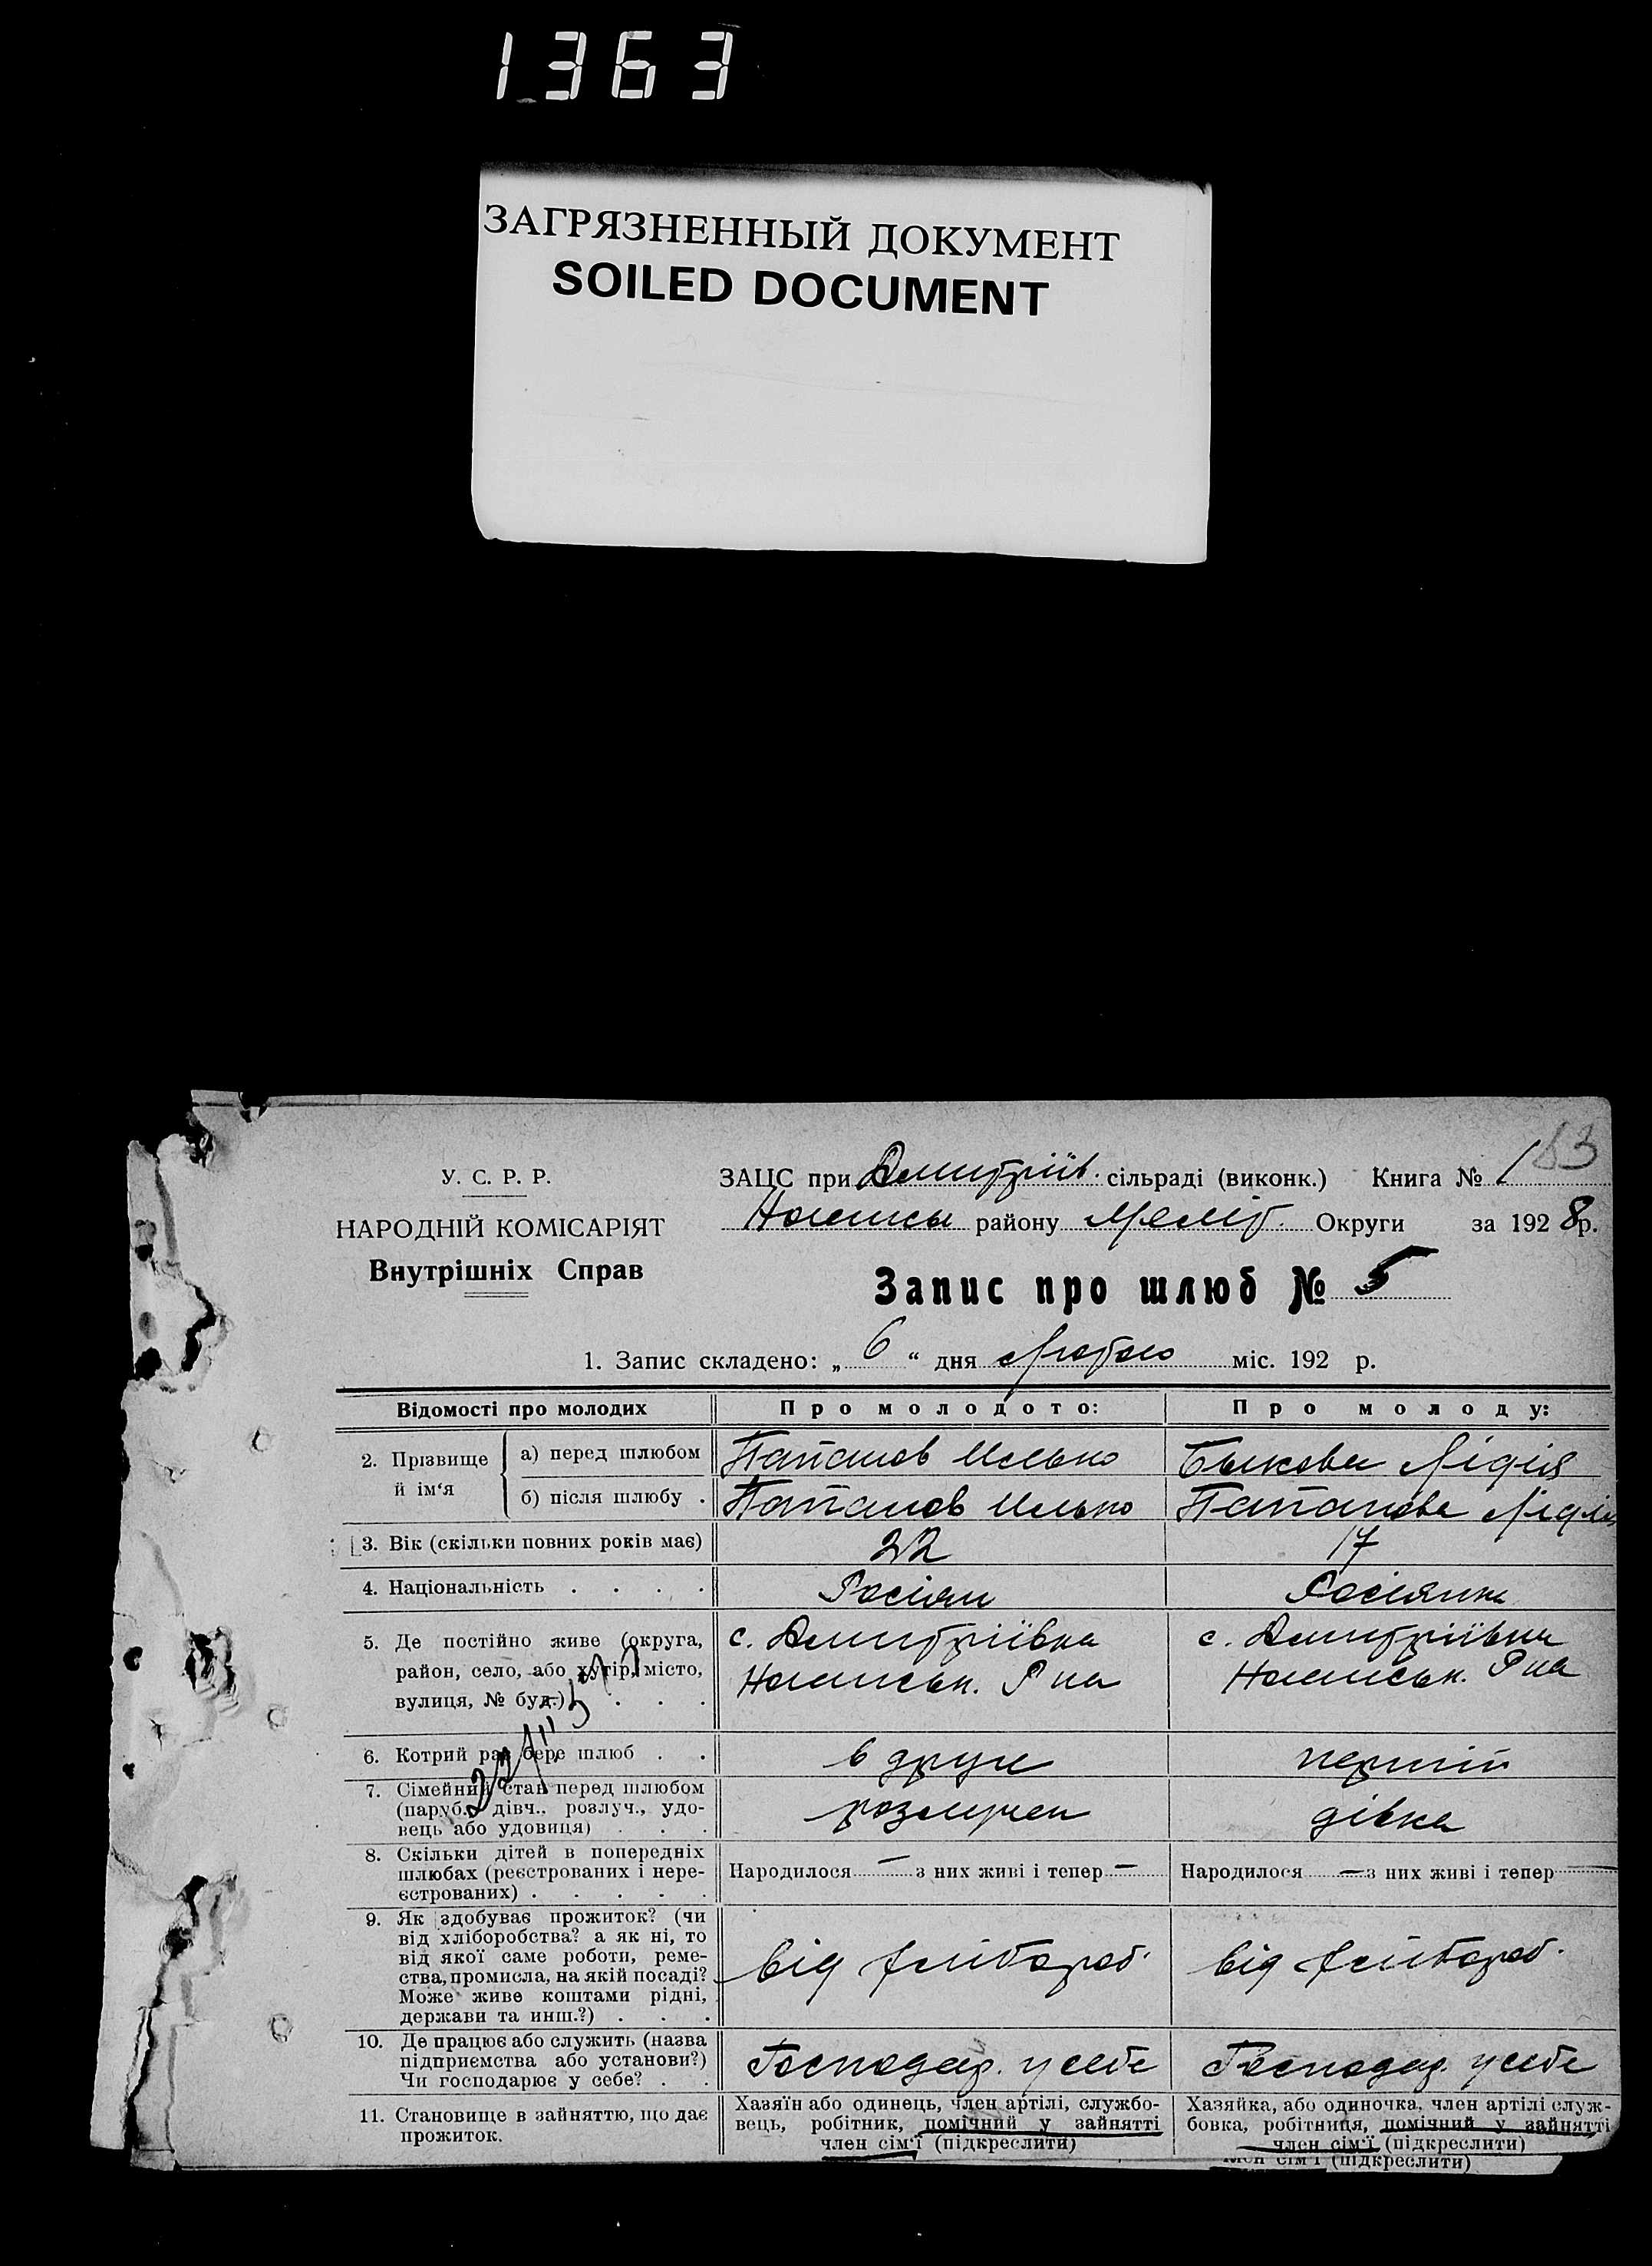 1363
ЗАГРЯЗНЕННЫЙ ДОКУМЕНТ
SOILED DOCUMENT
183
У. С. Р. Р.
НАРОДНІЙ КОМІСАРІЯТ
Внутрішніх Справ
ЗАЦС при Дмитріїв. сільраді (виконк.) Книга № 1
району Меліт. Округи за 1928 р.
Запис про шлюб № 5
1. Запис складено: „ 6 “ дня Лютого міс. 192 р.
Відомості про молодих
Про молодого:
Про молоду:
2. Прізвище й ім‘я
а) перед шлюбом
Патапов Илько
Быкова Лідія
б) після шлюбу .
Патапов Илько
Патапова Лідія
3. Вік (скільки повних років має)
22
17
4. Національність . . . .
Росіян
Росіянка
5. Де постійно живе (округа,
район, село, або хутір, місто,
вулиця, № буд.) . . . .
с. Дмитріївка
Р на
с. Дмитріївка
Р на
6. Котрий раз бере шлюб . .
в друге
перший
7. Сімейний стан перед шлюбом
(паруб., дівч., розлуч., удо-
вець або удовиця) . . .
розлучен
дівка
8. Скільки дітей в попередніх
шлюбах (реєстрованих і нере-
єстрованих) . . . . .
Народилося — з них живі і тепер —
Народилося — з них живі і тепер —
9. Як здобуває прожиток? (чи
від хліборобства? а як ні, то
від якої саме роботи, реме-
ства, промисла, на якій посаді?
Може живе коштами рідні,
держави та инш.?) . . .
від хлібороб.
від хлібороб.
10. Де працює або служить (назва
підприємства або установи?)
Чи господарює у себе? . .
Господар. у себе
Господар. у себе
11. Становище в зайняттю, що дає
прожиток.
Хазяїн або одинець, член артілі, службо-
вець, робітник, помічний у зайнятті
член сім‘ї (підкреслити)
Хазяйка, або одиночка, член артілі служ-
бовка, робітниця, помічний у зайнятті
член сім‘ї (підкреслити)
член сім‘ї (підкреслити)